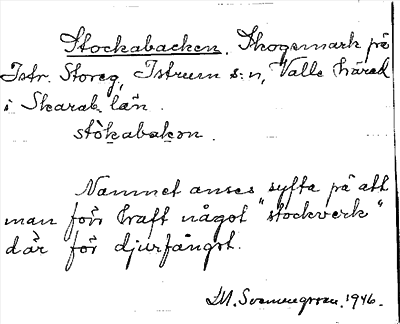 Stockabacken. Skogsmark på
Istr. Storeg, Istrum s:n, Valle härad
i Skarab. län.
stòkabakən.
Namnet anses syfta på att
man förr haft något "stockverk"
där för djurfångst.
1946.